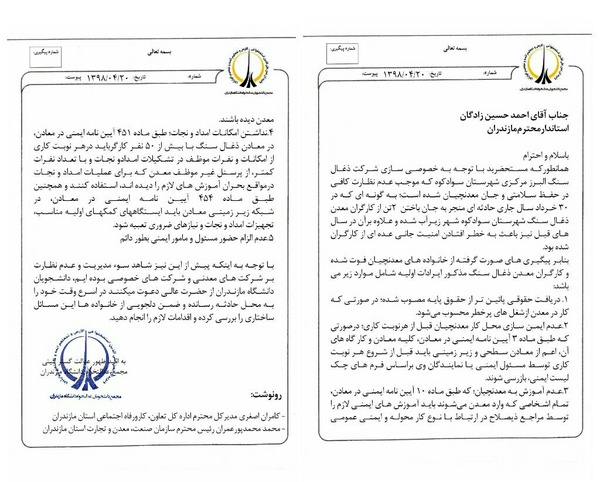 بسمه تعالی
شماره پیگیری:
شماره:
تاریخ: ۱۳۹۸/۰۴/۲۰
پیوست:
جناب آقای احمد حسین زادگان
استاندار محترم مازندران
باسلام و احترام
همانطورکه مستحضرید با توجه به خصوصی سازی شرکت ذغال
سنگ البرز مرکزی شهرستان سوادکوه که موجب عدم نظارت کافی
در حفظ سلامتی و جان معدنچیان شده است؛ به گونه ای که در
۳۰ خرداد سال جاری حادثه ای منجر به جان باختن ۲تن از کارگران معدن
ذغال سنگ شهرستان سوادکوه شهر زیرآب شده و علاوه برآن در سال
های قبل نیز باعث به خطر افتادن امنیت جانی عده ای از کارگران
شده بود.
بنابر پیگیری های صورت گرفته از خانواده های معدنچیان فوت شده
و کارگران معدن ذغال سنگ مذکور ایرادات اولیه شامل موارد زیر می
باشد:
۱.دریافت حقوقی پائین تر از حقوق پایه مصوب شده؛ در صورتی که
کار در معدن ازشغل های پرخطر محسوب می‌شود.
۲.عدم ایمن سازی محل کار معدنچیان قبل از هرنوبت کاری؛ درصورتی
که طبق ماده ۳ آیین نامه ایمنی در معادن، کلیه معادن و کار گاه های
آن، اعم از معادن سطحی و زیر زمینی باید قبل از شروع هر نوبت
کاری توسط مسئول ایمنی یا نمایندگان وی براساس فرم های چک
لیست ایمنی، بازرسی شوند.
۳.عدم آموزش به معدنچیان؛ که طبق ماده ۱۰ آیین نامه ایمنی در معادن،
تمام اشخاصی که وارد معدن می‌شوند باید آموزش های ایمنی لازم را
توسط مراجع ذیصلاح در ارتباط با نوع کار محوله و ایمنی عمومی
بسمه تعالی
شماره پیگیری:
شماره:
تاریخ: ۱۳۹۸/۰۴/۲۰
پیوست:
معدن دیده باشند.
۴.نداشتن امکانات امداد و نجات؛ طبق ماده ۴۵۱ آیین نامه ایمنی در معادن،
در معادن ذغال سنگ با بیش از ۵۰ نفر کارگرباید درهر نوبت کاری
از امکانات و نفرات موظف در تشکیلات امدادو نجات و با تعداد نفرات
کمتر، از پرسنل غیر موظف معدن که برای عملیات امداد و نجات
درمواقع بحران آموزش های لازم را دیده اند، استفاده کنند و همچنین
طبق ماده ۴۵۴ آیین نامه ایمنی در معادن، در
شبکه زیر زمینی معادن باید ایستگاههای کمکهای اولیه متناسب،
تجهیزات امداد و نجات و نیازهای ضروری تعبیه شود.
۵.عدم الزام حضور مسئول و مامور ایمنی بطور دائم
با توجه به اینکه پیش از این نیز شاهد سوء مدیریت و عدم نظارت
بر شرکت های معدنی و شرکت های خصوصی بوده ایم، دانشجویان
دانشگاه مازندران از حضرت عالی دعوت میکنند در اسرع وقت خود را
به محل حادثه رسانده و ضمن دلجویی از خانواده ها این مسائل
ساختاری را بررسی کرده و اقدامات لازم را انجام دهید.
به امید ظهور عدالت گستر گیتی
مجمع دانشجویان عدالتخواه دانشگاه مازندران
رونوشت:
- کامران اصغری مدیرکل محترم اداره کل تعاون، کارورفاه اجتماعی استان مازندران
- محمد محمدپورعمران رئیس محترم سازمان صنعت، معدن و تجارت استان مازندران